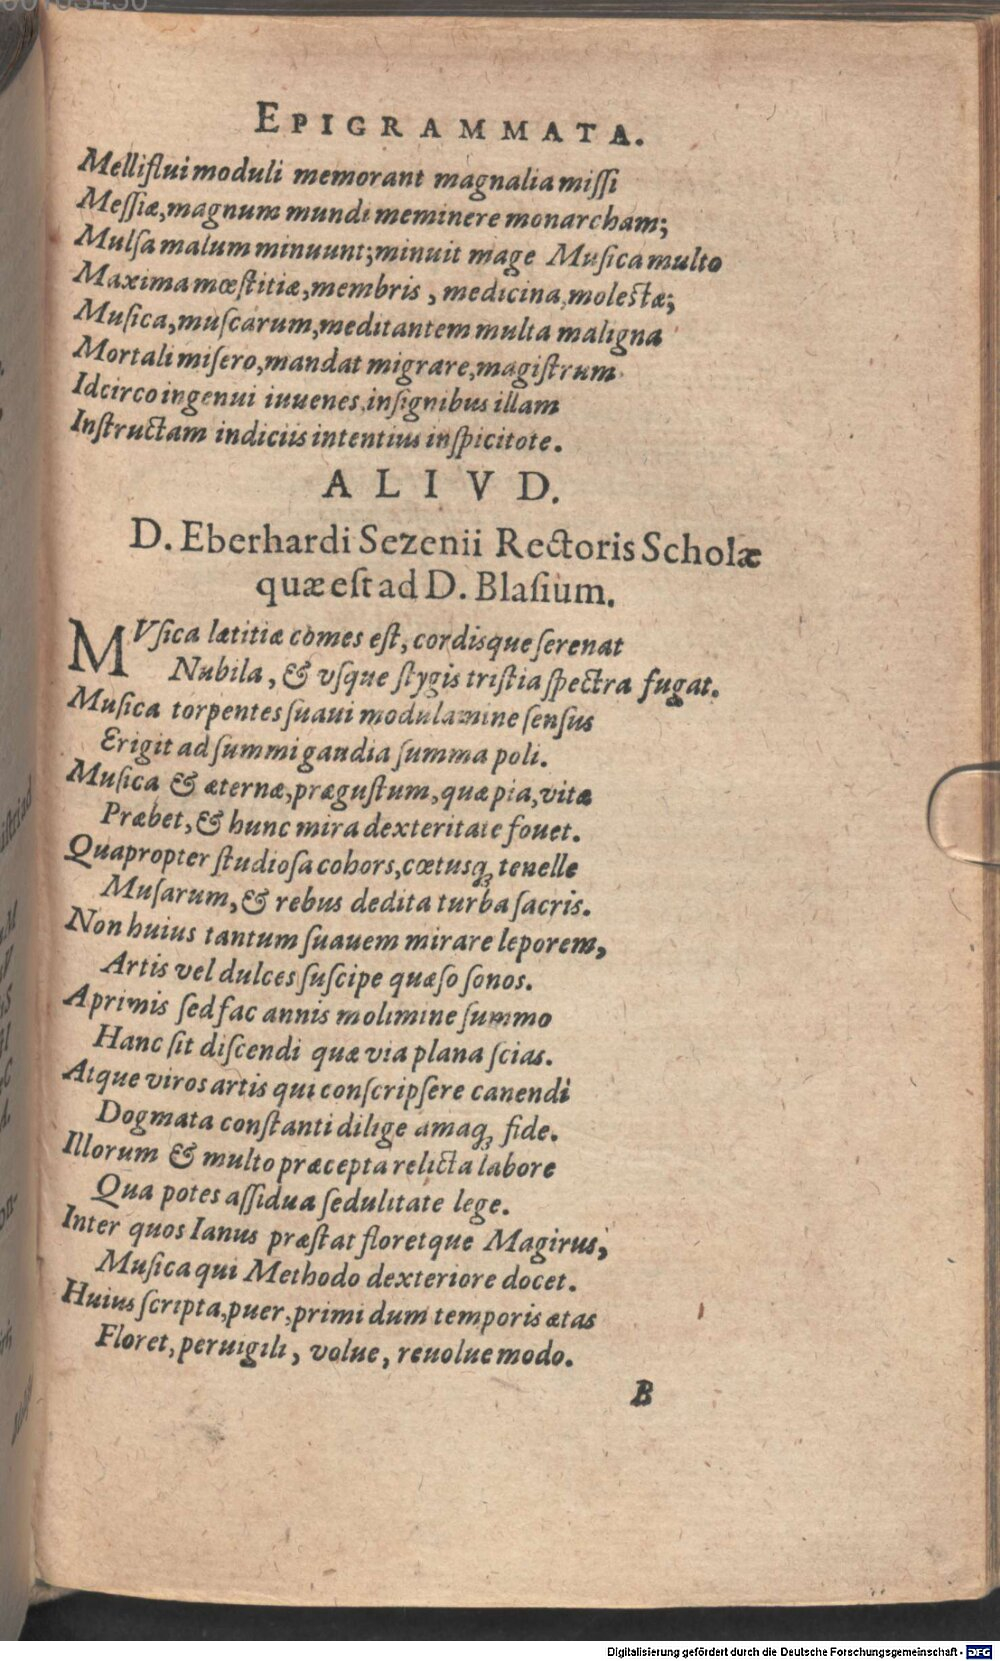 EPIGRAMMATA.
Melliflui moduli memorant magnalia miſſi
Meſſiæ, magnum mundi meminere monarcham;
Mulſa malum minuunt; minuit mage Muſica multo
Maxima mœſtitiæ, membris, medicina, moleſtæ;
Muſica, muſcarum, meditantem multa maligna
Mortali miſero, mandat migrare, magiſtrum.
Idcirco ingenui iuuenes, inſignibus illam
Inſtructam indiciis intentius inſpicitote.
ALIVD.
D. Eberhardi Sezenii Rectoris Scholæ
quæ eſt ad D. Blaſium.
MVſica lætitiæ comes eſt, cordisque ſerenat
Nubila, & vſque ſtygis triſtia ſpectra fugat.
Muſica torpentes ſuaui modulamine ſenſus
Erigit ad ſummi gaudia ſumma poli.
Muſica & æternæ, præguſtum, quæ pia, vitæ
Præbet, & hunc mira dexteritate fouet.
Quapropter ſtudioſa cohors, cœtusq́ꝫ tenelle
Muſarum, & rebus dedita turba ſacris.
Non huius tantum ſuauem mirare leporem,
Artis vel dulces ſuſcipe quæſo ſonos.
A primis ſed fac annis molimine ſummo
Hanc ſit diſcendi quæ via plana ſcias.
Atque viros artis qui conſcripſere canendi
Dogmata conſtanti dilige amaqꝫ fide.
Illorum & multo præcepta relicta labore
Qua potes aſſidua ſedulitate lege.
Inter quos Ianus præſtat floretque Magirus,
Muſica qui Methodo dexteriore docet.
Huius ſcripta, puer, primi dum temporis ætas
Floret, peruigili, volue, reuolue modo.
B
Digitalisierung gefördert durch die Deutsche Forschungsgemeinschaft - DFG